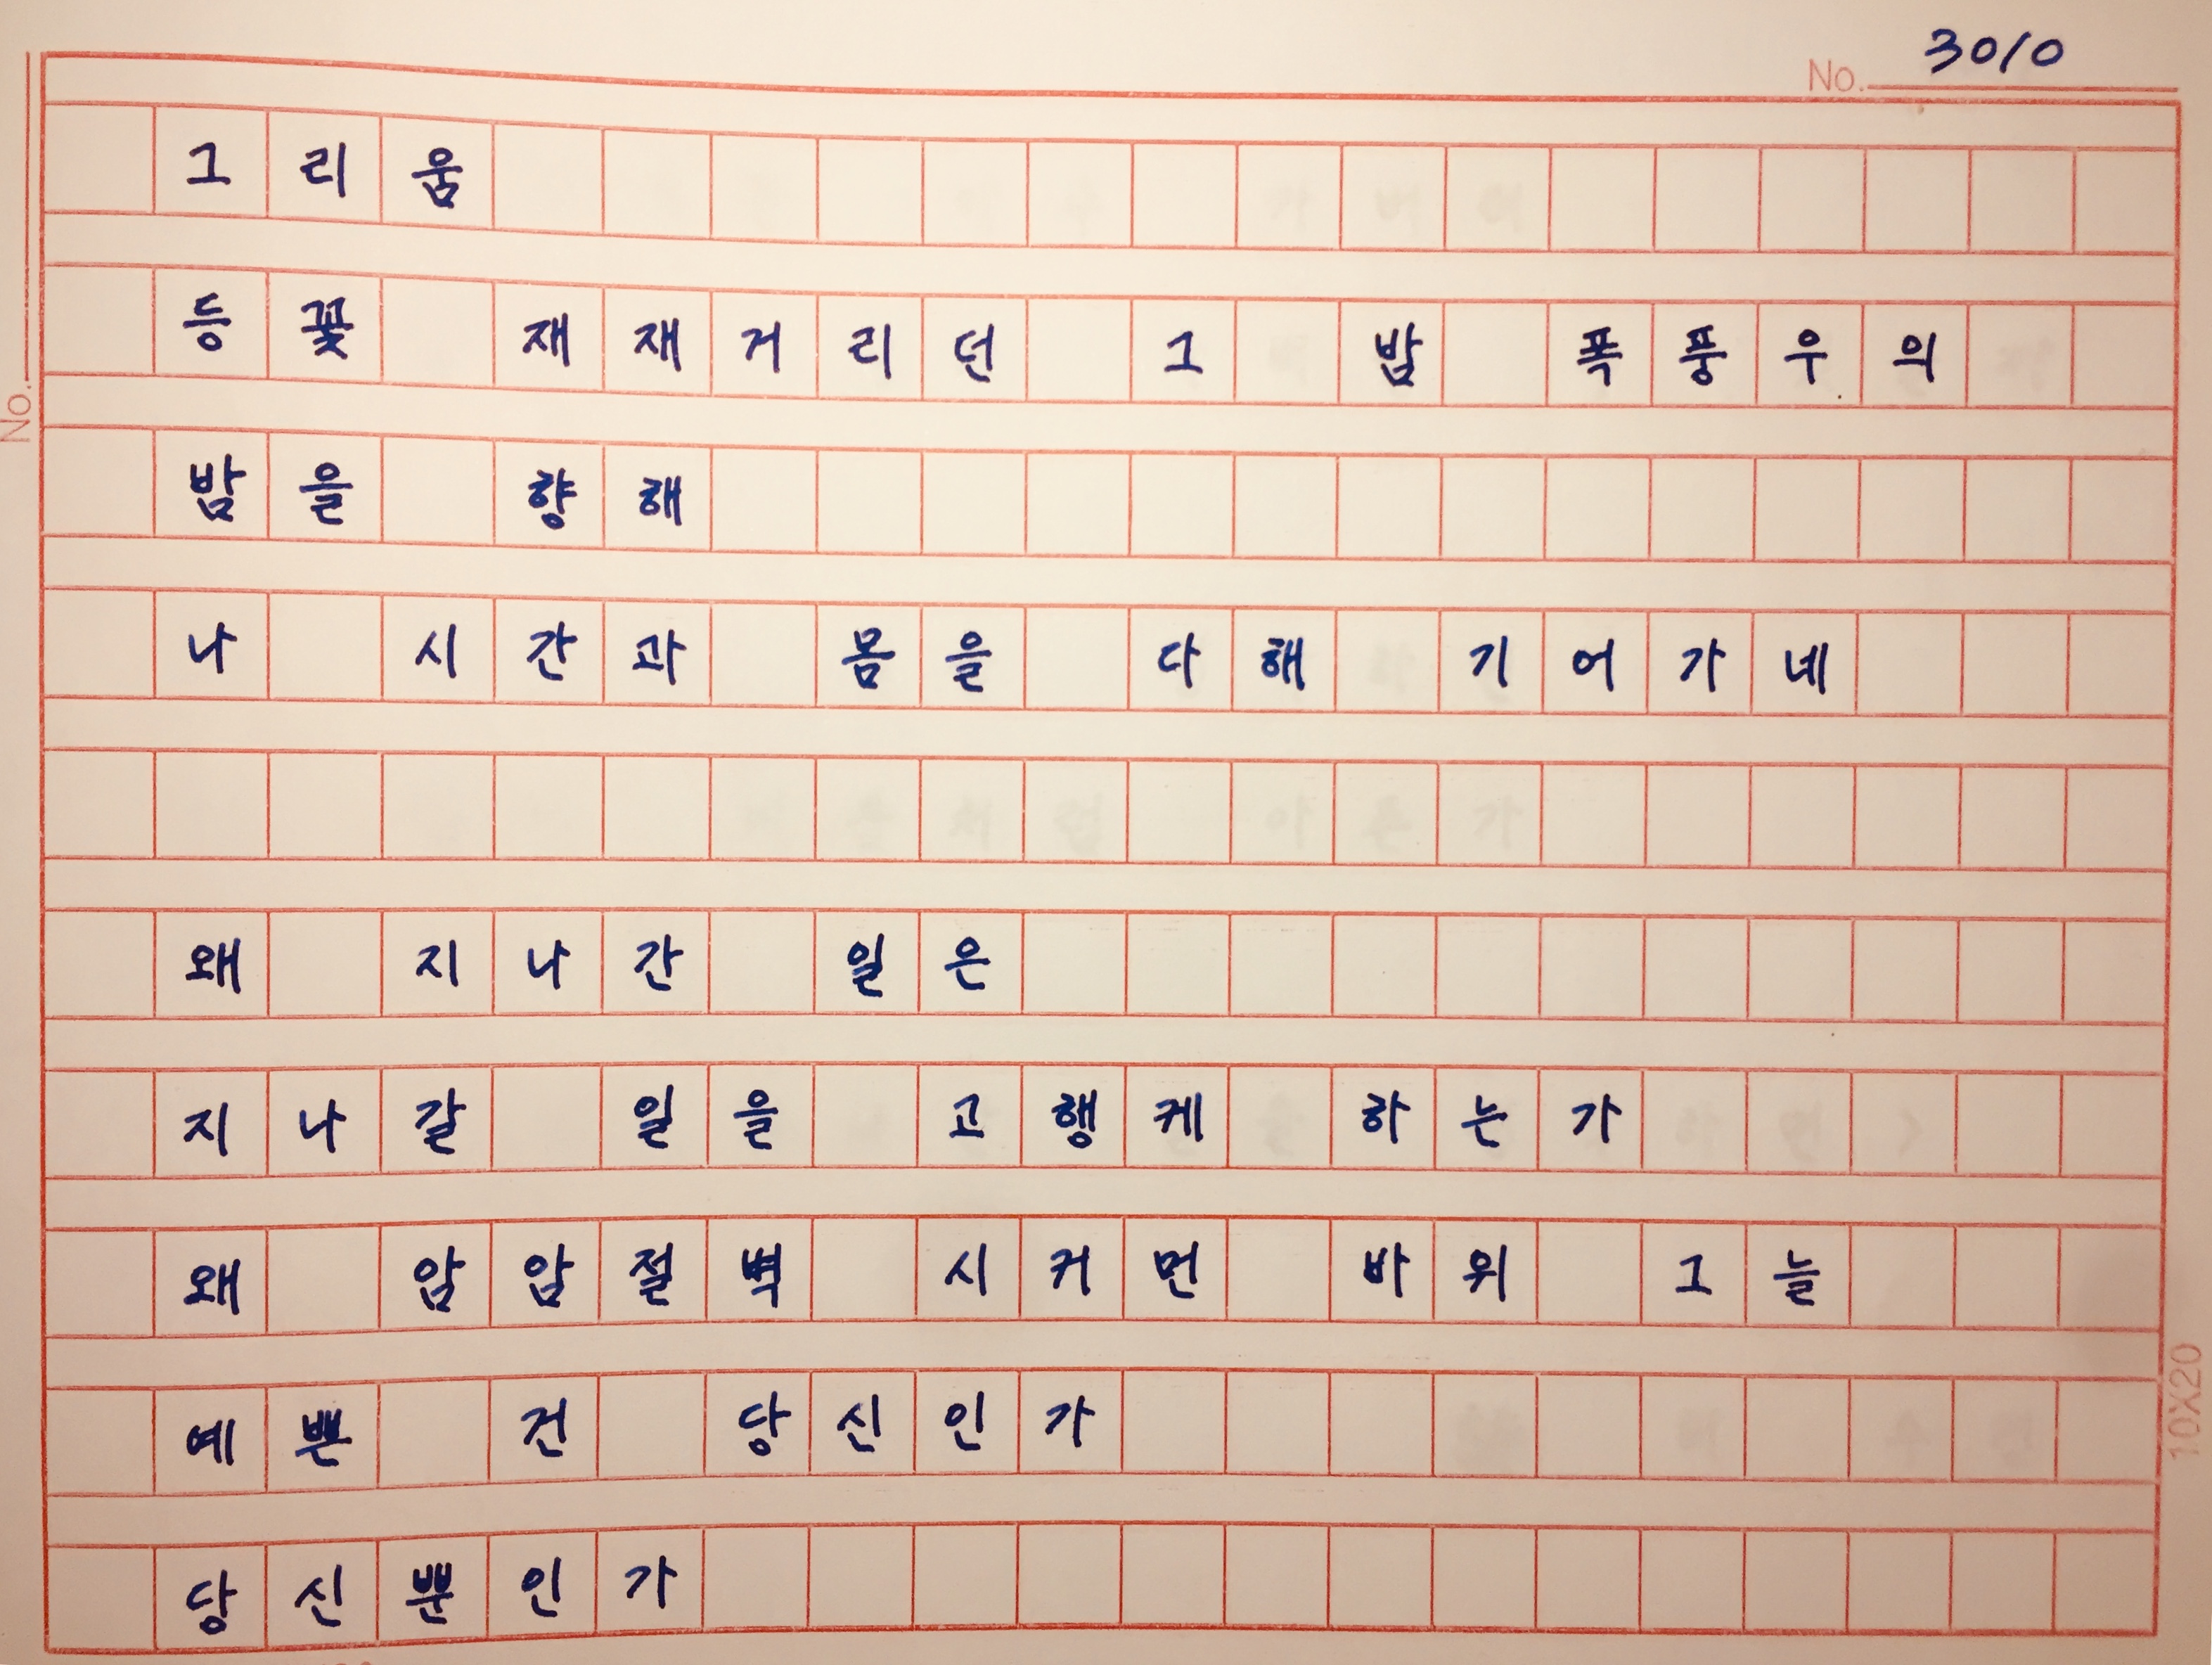 No. 3010
그리움
등꽃 재재거리던 그 밤 폭풍우의
밤을 향해
나 시간과 몸을 다해 기어가네
왜 지나간 일은
지나갈 일을 고행케 하는가
왜 암암절벽 시커먼 바위 그늘
예쁜 건 당신인가
당신뿐인가
No.
10X20